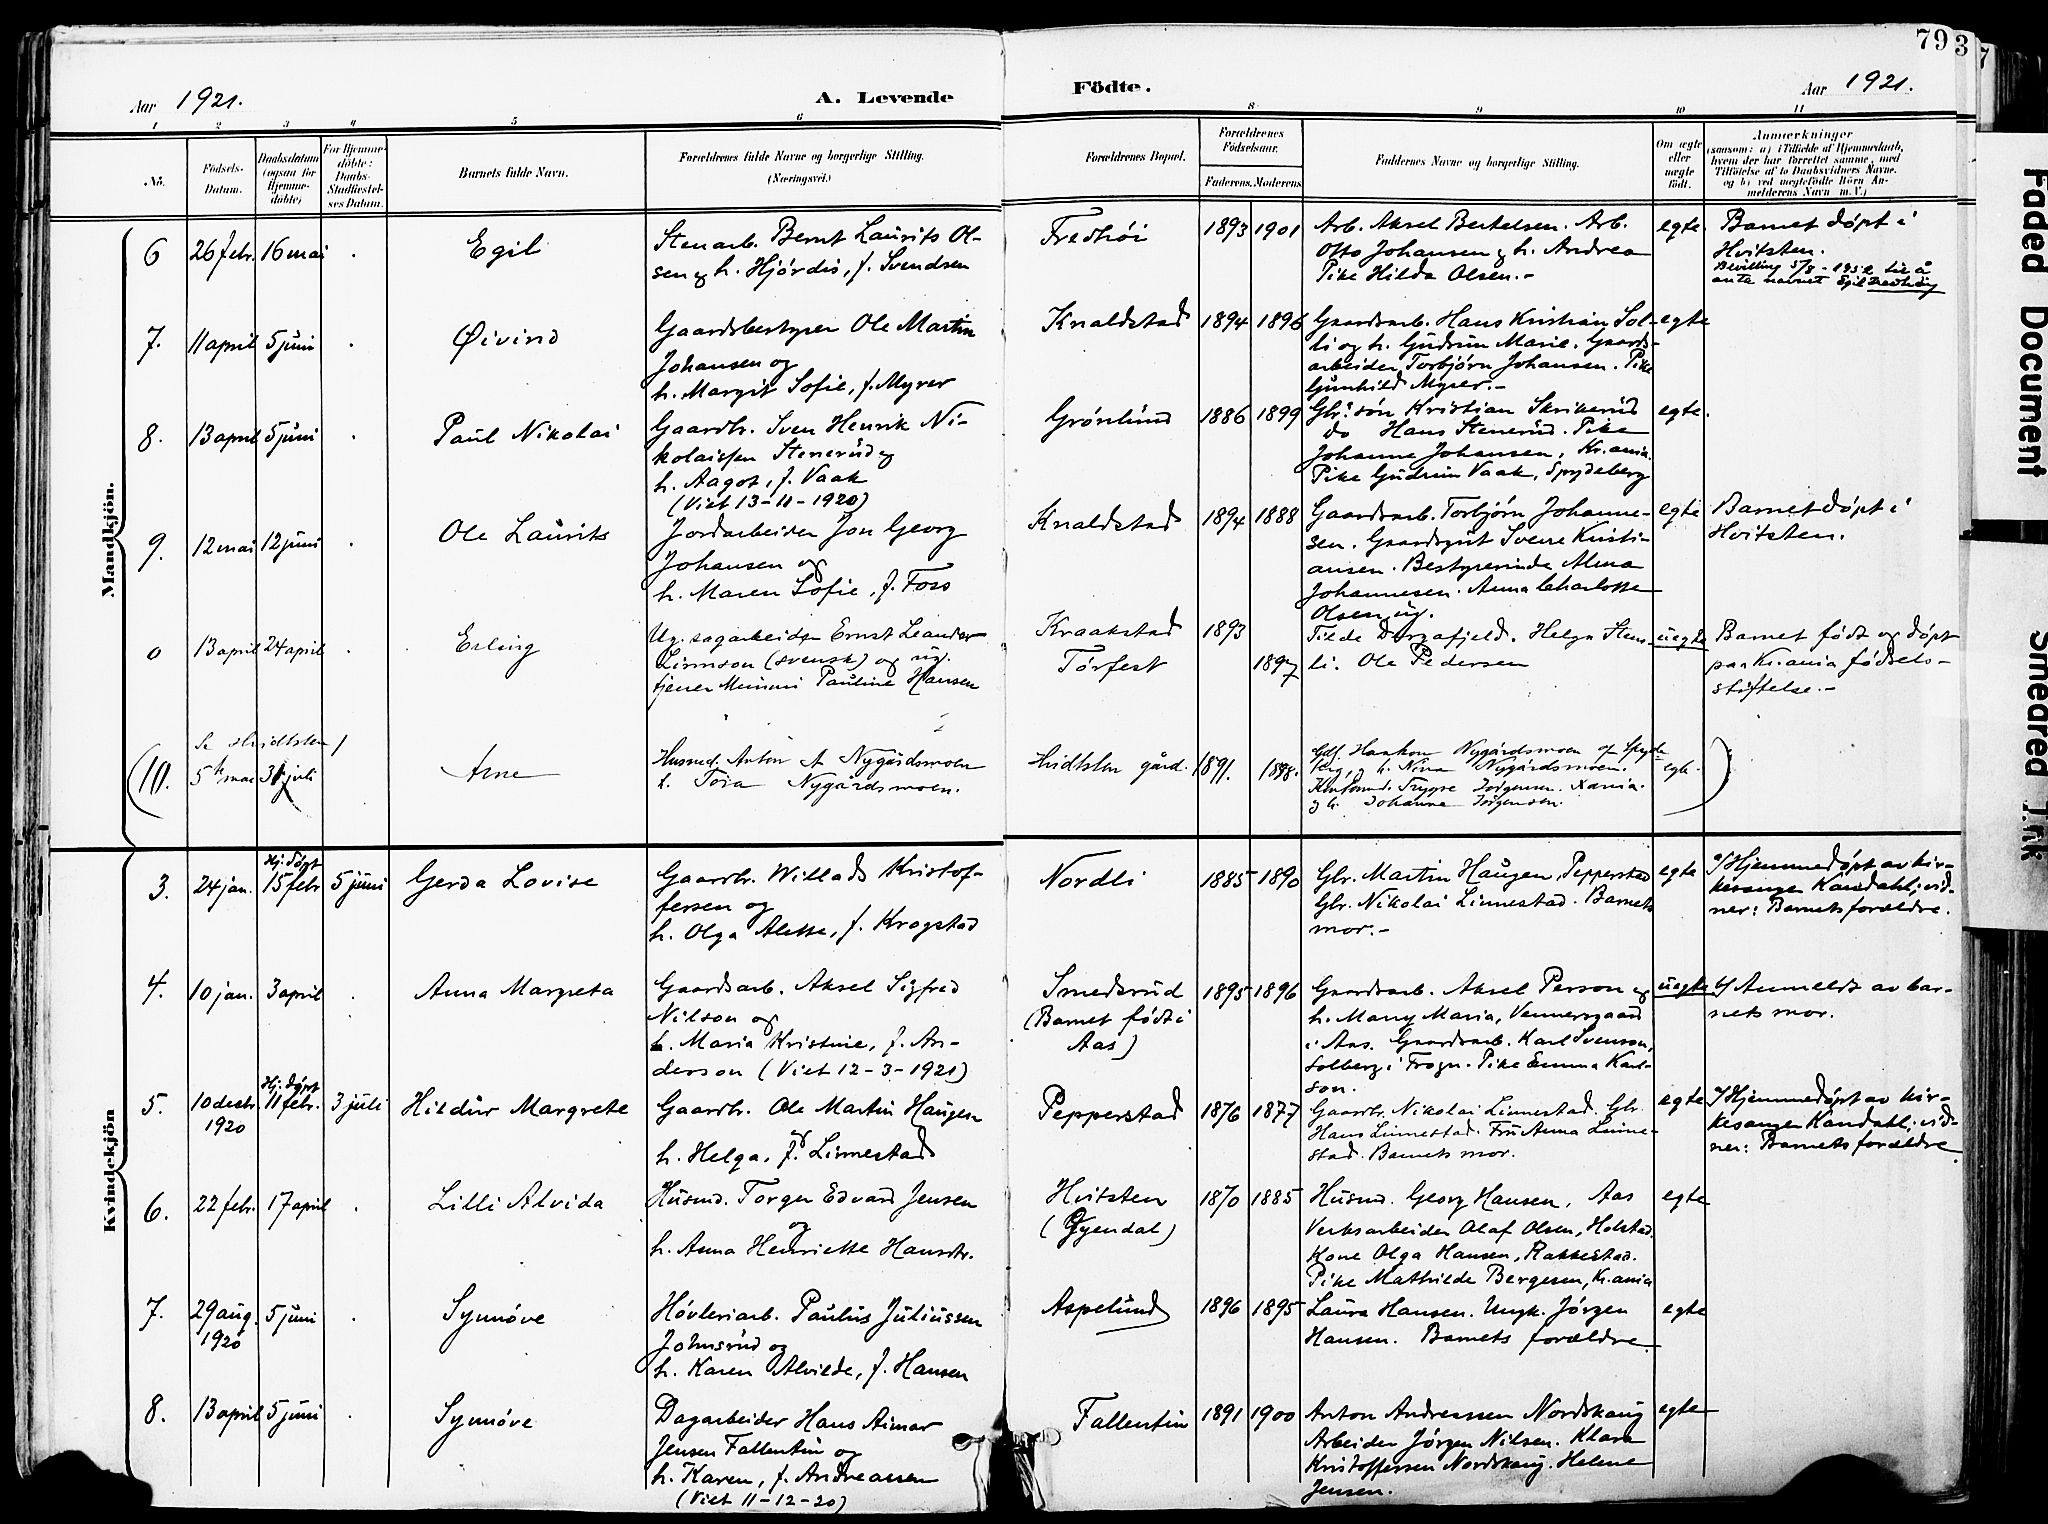 793
Aar 1921.
A. Levende
Födte.
Aar 1921.
1 2 3 4 5 6 8 9 10 11
No.
Födsels-
Datum.
Daabsdatum
(ogsaa for
Hjemme-
döbte)
For Hjemme-
döbte:
Daabs-
Stadfæstel-
ses Datum.
Barnets fulde Navn.
Forældrenes fulde Navne og borgerlige Stilling.
(Næringsvei.)
Forældrenes Bopæl.
Forældrenes
Födselsaar.
Faderens. Moderens
Faddernes Navne og borgerlige Stilling.
Om ægte
eller
uægte
födt.
Anmærkninger
(saasom: a) i Tilfælde af Hjemmedaab,
hvem der har forrettet samme, med
Tilföielse af to Daabsvidners Navne.
og b) ved uægtefödte Börn An-
melderens Navn m. V.)
Mandkjön.
6 26 febr. 16 mai . Egil
Stenarb. Bernt Laurits Ol-
sen og h. Hjördis, f. Svendsen
Fredhöi 1893 1901
Arb. Aksel Bertelsen. Arb.
Otto Johansen og h. Andrea
Pike Hilda Olsen.-
egte.
Barnet döpt i
Hvitsten.
Bevilling 5/8 - 1952 til å
anta navnet Egil Fredhöi
7. 11 april 5 juni . Øivind
Gaardsbestyrer Ole Martin
Johansen og
h. Margit Sofie, f. Myrer
Knaldstad 1894 1896
Gaardsarb. Hans Kristian Sol-
li og h. Gudrun Marie. Gaards-
arbeider Torbjörn Johansen. Pike
Gunhild Myrer.-
egte
8. 13 april 5 juni . Paul Nikolai
Gaardbr. Sven Henrik Ni-
kolaissen Stenerud og
h. Aagot, f. Vaak
(Viet 13-11-1920)
Grönlund 1886 1899
Gbr. sön Kristian Skrikerud
do Hans Stenerud. Pike
Johanne Johansen, Kr.ania.
Pike Gudrun Vaak, Spydeberg
egte.
9. 12 mai 12 juni . Ole Laurits
Jordarbeider Jon Georg
Johansen og
h. Maren Sofie, f. Foss
Knaldstad 1894 1888
Gaardsarb. Torbjörn Johanne-
sen. Gaardsgut Sverre Kristi-
ansen. Bestyrerinde Alma
Johannesen. Anna Charlotte
Olsen ug.
egte
Barnet döpt i
Hvitsten.
0 13 april 24 april . Erling
Ug. sagarbeider Ernst Leander
Linnson (svensk) og ug.
tjener Mimmi Pauline Hansen
Kraakstad 1893
Torfest 1897
Tilda Dovrafjeld. Helga Stens-
li. Ole Pedersen
uegte
Barnet födt og döpt
paa Kr.ania födsels-
stiftelse.-
Se Hvidtsten
(10. 5 mai 31 juli Arne
Husmd. Anton A Nygårdsmoen
h. Tora Nygårdsmoen.
Hvidtsten gård. 1891. 1898.
Gdf. Haakon Nygårdsmoen og
h. Nina Nygårdsmoen.
Trygve Jørgensen. Xania.
og h. Johanne Jørgensen.
egte.
)
Kvindekjön
3. 24 jan. Hj. döpt
15 febr 5 juni Gerda Lovise
Gaardbr. Willads Kristof-
fersen og
h. Olga Alette, f. Krogstad
Nordli 1885 1890
Gbr. Martin Haugen, Pepperstad
Gbr. Nikolai Linnestad. Barnets
mor.-
egte
a/ Hjemmedöpt av kir-
kesanger Kandahl; vid-
ner: Barnets forældre.
4. 10 jan. 3 april . Anna Margreta
Gaardsarb. Aksel Sigfred
Nilson og
h. Maria Kristine, f. An-
derson (Viet 12-3-1921)
Smedsrud
(Barnet födt i
Aas) 1895 1896
Gaardsarb. Aksel Person og
h. Marry Maria, Vennersgaard
i Aas. Gaardsarb. Karl Svenson,
Solberg i Frogn. Pike Emma Karl-
son.
uegte
b/ Anmeldt av bar-
nets mor.
5. 10 desbr.
1920 Hj. döpt
11 febr. 3 juli Hildur Margrete
Gaardbr. Ole Martin Haugen
og
h. Helga, f. Linnestad
Pepperstad 1876 1877
Gaardbr. Nikolai Linnestad. Gbr.
Hans Linnestad. Fru Anna Linne-
stad. Barnets mor.
egte
a/ Hjemmedöpt av kir-
kesanger Kandahl; vid-
ner: Barnets forældre.
6. 22 febr. 17 april . Lilli Alvida
Husmd. Torger Edvard Jensen
og
h. Anna Henriette Hansdtr.
Hvitsten
(Gyendal) 1870 1885
Husmd. Georg Hansen, Aas
Verksarbeider Olaf Olsen, Holstad.
Kone Olga Hansen, Rakkestad.
Pike Mathilde Bergesen, Kr.ania
egte
7. 29 aug.
1920 5 juni . Synnöve
Hövleriarb. Paulus Juliussen
Johnsrud og
h. Karen Alvilde, f. Hansen
Aspelund 1896 1895
Laura Hansen. Ungk. Jörgen
Hansen. Barnets forældre
egte
8. 13 april 5 juni . Synnöve
Dagarbeider Hans Aimar
Jensen Fallentin og
h. Karen, f. Andreassen
(Viet 11-12-20)
Fallentin 1891 1900
Anton Andreassen Nordskaug
Arbeider Jörgen Nilsen. Klara
Kristoffersen Nordskaug. Helene
Jensen.
egte
Faded Document
Smeared Ink